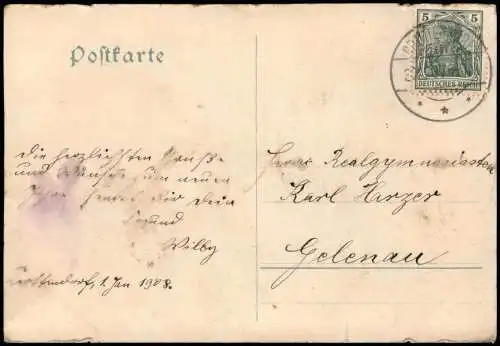 Postkarte
5 5
DEUTSCHES REICH
Die herzlichsten Grüße
und Wünsche zum neuen
Jahre sendet dir Dein
Freund
Willy
1 Jan 1908.
Herrn Realgymnasiasten
Karl Harzer
Gelenau